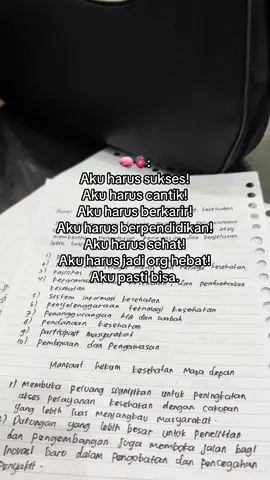 :
Aku harus sukses!
Aku harus cantik!
Aku harus berkarir!
Aku harus berpendidikan!
Aku harus sehat!
Aku harus jadi org hebat!
Aku pasti bisa.
kesehatan
2)
3) Fasilitas
kesehatan
4)
kesehatan
5) Sistem informasi kesehatan
6) Penyelenggaraan teknologi kesehatan
7) Penanggulangan KLB dan wabah
8) Pendanaan kesehatan
9) Partisipasi Masyarakat
10) Pembinaan dan Pengawasan
Manfaat hukum kesehatan Masa depan
1) Membuka peluang signifikan untuk peningkatan
akses pelayanan kesehatan dengan cakupan
yang lebih luas menjangkau masyarakat.
2) Dukungan yang lebih besar untuk penelitian
dan pengembangan juga membuka jalan bagi
inovasi baru dalam pengobatan dan pencegahan
Penyakit.